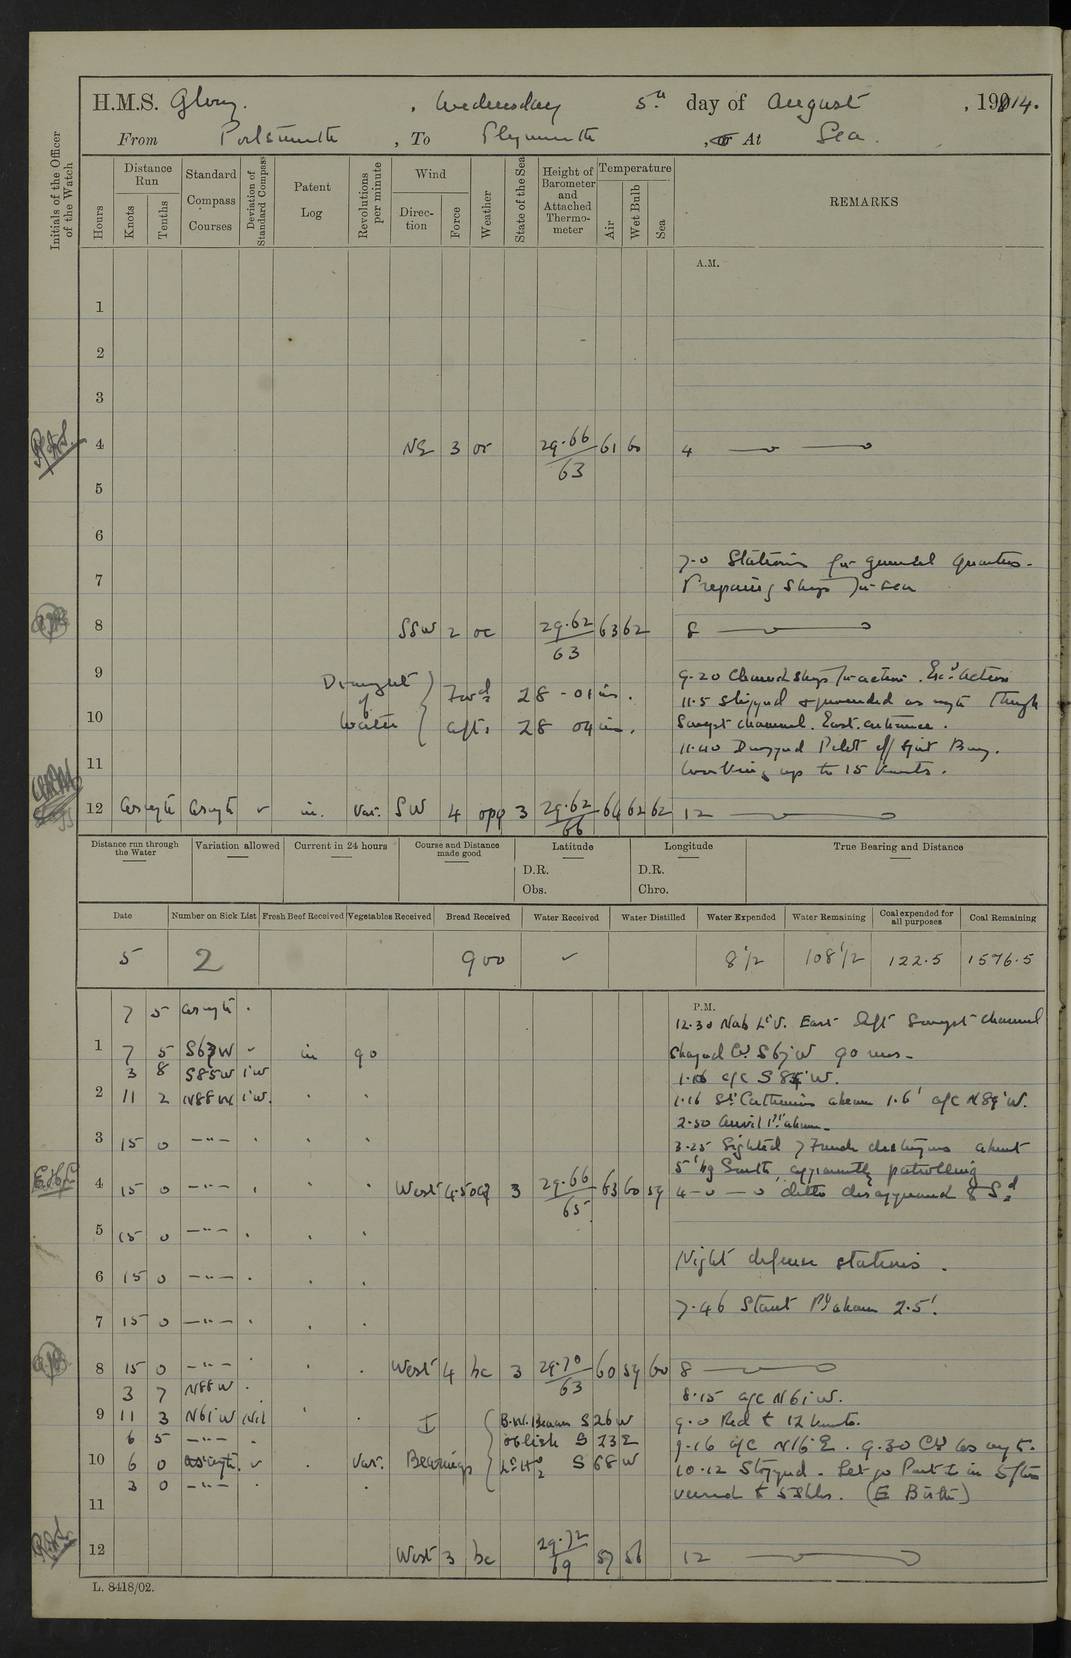 H.M.S. Glory. , Wednesday 5th day of August , 1914.
From Portsmouth , To Plymouth , or At Sea.
Initials of the Officer of the Watch
Hours
Distance Run
Knots
Tenths
Standard Compass Courses
Deviation of Standard Compass
Patent Log
Revolutions per minute
Wind
Direction
Force
Weather
State of the Sea
Height of Barometer and Attached Thermometer
Temperature
Air
Wet Bulb
Sea
REMARKS
A.M.
1
2
3
4 NE 3 or 29.66 61 60 4
63
5
6
7.0 Stations for general quarters.
7 Preparing ship for sea
8 SSW 2 oc 29.62 63 62 8
63
9 9.20 Cleared ship for action. Exd action
Draught of Water Fwd 28 - 01 in.
11.5 Slipped & proceeded as reqte through
10 aft. 28 04 in. Swept channel. East. entrance.
11.40 Dropped Pilot off Spit Buoy.
11 Working up to 15 knots.
12 as reqte as reqte in. Var. SW 4 opq 3 29.62 64 62 62 12
66
Distance run through the Water
Variation allowed
Current in 24 hours
Course and Distance made good
Latitude
D.R.
Obs.
Longitude
D.R.
Chro.
True Bearing and Distance
Date Number on Sick List Fresh Beef Received Vegetables Received Bread Received Water Received Water Distilled Water Expended Water Remaining Coal expended for all purposes Coal Remaining
5 2 900 8 1/2 108 1/2 122.5 1576.5
P.M.
7 5 as reqte 12.30 Nab Lt V. East left Swept channel
1 7 5 S67W in 90 shaped Co S67W 90 revs.
3 8 S85W 1'W a/c S 85 W.
2 11 2 N88W 1'W. 1.16 St Catherines abeam 1.6' a/c N89°W.
2.50 Anvil Pt abeam.
3 15 0 —"— 3.25 Sighted 7 French destroyers about
5' by South, apparently patrolling
4 15 0 —"— West 4.5 3 29.66 63 60 59 4 ditto disappeared Sd
65
5 15 0 —"—
Night defence stations.
6 15 0 —"—
7.46 Start Pt abeam 2.5'.
7 15 0 —"—
8 15 0 —"— West 4 bc 3 29.70 60 59 60 8
63
3 7 N88W 8.15 a/c N61°W.
9 11 3 N61W Nil I B.W. Beacon S26W 9.0 Red to 12 knots.
6 5 —"— S 23 E 9.16 a/c N16°E. 9.30 Co as reqte.
10 6 0 as reqte Var. Bearings S 68 W 10.12 Stopped. Let go Port in 5 fms
3 0 —"— veered to 5 shks. (E Berth)
11
12 West 3 bc 29.72 57 56 12
69
L. 8418/02.